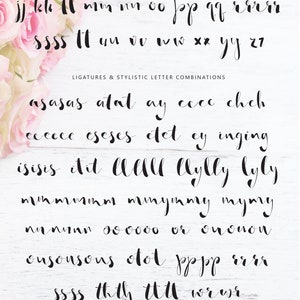 jj kk ll mm nn oo pp qq rrrr
ssss tt uu vv ww xx yy zz
LIGATURES & STYLISTIC LETTER COMBINATIONS
asasas atat ay ecec chch
eceeec eseses etet ey inging
isisis itit llllll llylly lyly
mmmmmm mmymmy mymy
nununun oooooo or ououou
ousousous otot pppp rrrr
ssss thth tttt wrwr